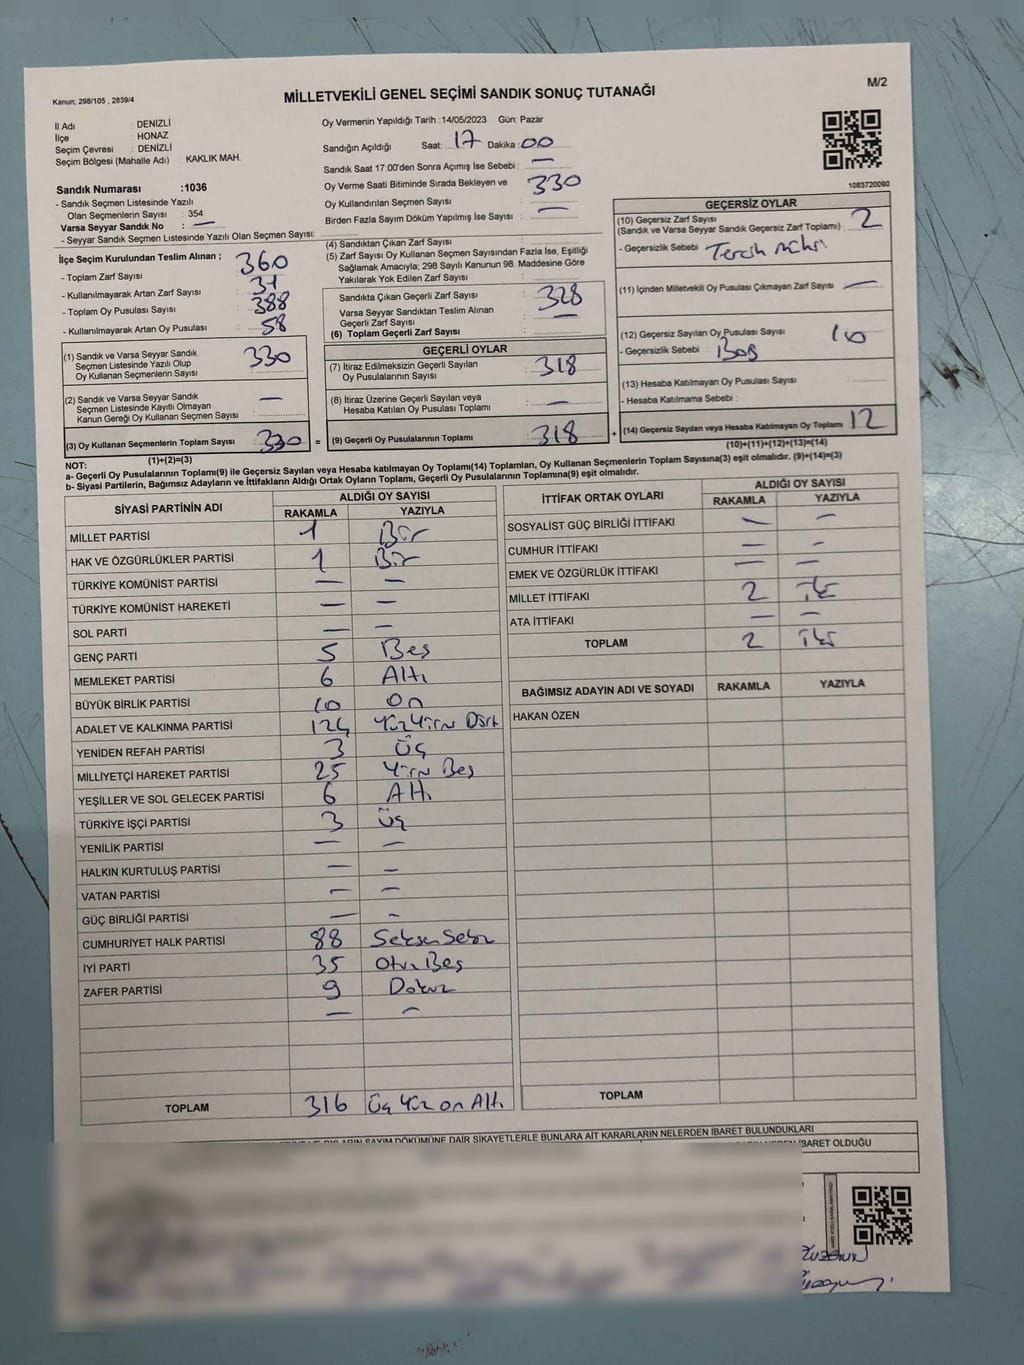 Kanun; 298/105 , 2839/4
MİLLETVEKİLİ GENEL SEÇİMİ SANDIK SONUÇ TUTANAĞI
M/2
İl Adı : DENİZLİ
İlçe : HONAZ
Seçim Çevresi : DENİZLİ
Seçim Bölgesi (Mahalle Adı) KAKLIK MAH.
Sandık Numarası :1036
- Sandık Seçmen Listesinde Yazılı
Olan Seçmenlerin Sayısı : 354
Varsa Seyyar Sandık No : —
- Seyyar Sandık Seçmen Listesinde Yazılı Olan Seçmen Sayısı:
İlçe Seçim Kurulundan Teslim Alınan ;
- Toplam Zarf Sayısı : 360
- Kullanılmayarak Artan Zarf Sayısı : 31
- Toplam Oy Pusulası Sayısı : 388
- Kullanılmayarak Artan Oy Pusulası : 58
(1) Sandık ve Varsa Seyyar Sandık
Seçmen Listesinde Yazılı Olup
Oy Kullanan Seçmenlerin Sayısı : 330
(2) Sandık ve Varsa Seyyar Sandık
Seçmen Listesinde Kayıtlı Olmayan
Kanun Gereği Oy Kullanan Seçmen Sayısı : —
(3) Oy Kullanan Seçmenlerin Toplam Sayısı : 330 =
(1)+(2)=(3)
Oy Vermenin Yapıldığı Tarih :14/05/2023 Gün: Pazar
Sandığın Açıldığı Saat: 17 Dakika: 00
Sandık Saat 17:00'den Sonra Açımış İse Sebebi : —
Oy Verme Saati Bitiminde Sırada Bekleyen ve
Oy Kullandırılan Seçmen Sayısı : 330
Birden Fazla Sayım Döküm Yapılmış İse Sayısı : —
(4) Sandıktan Çıkan Zarf Sayısı :
(5) Zarf Sayısı Oy Kullanan Seçmen Sayısından Fazla İse, Eşitliği
Sağlamak Amacıyla; 298 Sayılı Kanunun 98. Maddesine Göre
Yakılarak Yok Edilen Zarf Sayısı :
Sandıkta Çıkan Geçerli Zarf Sayısı : 328
Varsa Seyyar Sandıktan Teslim Alınan
Geçerli Zarf Sayısı : —
(6) Toplam Geçerli Zarf Sayısı :
GEÇERLİ OYLAR
(7) İtiraz Edilmeksizin Geçerli Sayılan
Oy Pusulalarının Sayısı : 318
(8) İtiraz Üzerine Geçerli Sayılan veya
Hesaba Katılan Oy Pusulası Toplamı : —
(9) Geçerli Oy Pusulalarının Toplamı : 318 +
1083720090
GEÇERSİZ OYLAR
(10) Geçersiz Zarf Sayısı
(Sandık ve Varsa Seyyar Sandık Geçersiz Zarf Toplamı) : 2
- Geçersizlik Sebebi : Tercih
(11) İçinden Milletvekili Oy Pusulası Çıkmayan Zarf Sayısı : —
(12) Geçersiz Sayılan Oy Pusulası Sayısı : 10
- Geçersizlik Sebebi : Boş
(13) Hesaba Katılmayan Oy Pusulası Sayısı :
- Hesaba Katılmama Sebebi :
(14) Geçersiz Sayılan veya Hesaba Katılmayan Oy Toplamı : 12
(10)+(11)+(12)+(13)=(14)
NOT:
a- Geçerli Oy Pusulalarının Toplamı(9) ile Geçersiz Sayılan veya Hesaba katılmayan Oy Toplamı(14) Toplamları, Oy Kullanan Seçmenlerin Toplam Sayısına(3) eşit olmalıdır. (9)+(14)=(3)
b- Siyasi Partilerin, Bağımsız Adayların ve İttifakların Aldığı Ortak Oyların Toplamı, Geçerli Oy Pusulalarının Toplamına(9) eşit olmalıdır.
SİYASİ PARTİNİN ADI ALDIĞI OY SAYISI
RAKAMLA YAZIYLA
MİLLET PARTİSİ 1 Bir
HAK VE ÖZGÜRLÜKLER PARTİSİ 1 Bir
TÜRKİYE KOMÜNİST PARTİSİ — —
TÜRKİYE KOMÜNİST HAREKETİ — —
SOL PARTİ — —
GENÇ PARTİ 5 Beş
MEMLEKET PARTİSİ 6 Altı
BÜYÜK BİRLİK PARTİSİ 10 On
ADALET VE KALKINMA PARTİSİ 124 Yüz Yirmi Dört
YENİDEN REFAH PARTİSİ 3 Üç
MİLLİYETÇİ HAREKET PARTİSİ 25 Yirmi Beş
YEŞİLLER VE SOL GELECEK PARTİSİ 6 Altı
TÜRKİYE İŞÇİ PARTİSİ 3 Üç
YENİLİK PARTİSİ — —
HALKIN KURTULUŞ PARTİSİ — —
VATAN PARTİSİ — —
GÜÇ BİRLİĞİ PARTİSİ — —
CUMHURİYET HALK PARTİSİ 88 Seksen Sekiz
İYİ PARTİ 35 Otuz Beş
ZAFER PARTİSİ 9 Dokuz
— —
TOPLAM 316 Üç Yüz on Altı
İTTİFAK ORTAK OYLARI ALDIĞI OY SAYISI
RAKAMLA YAZIYLA
SOSYALİST GÜÇ BİRLİĞİ İTTİFAKI — —
CUMHUR İTTİFAKI — —
EMEK VE ÖZGÜRLÜK İTTİFAKI — —
MİLLET İTTİFAKI 2 İki
ATA İTTİFAKI — —
TOPLAM 2 İki
BAĞIMSIZ ADAYIN ADI VE SOYADI RAKAMLA YAZIYLA
HAKAN ÖZEN
TOPLAM
OYLARIN SAYIM DÖKÜMÜNE DAİR ŞİKAYETLERLE BUNLARA AİT KARARLARIN NELERDEN İBARET BULUNDUKLARI
İBARET OLDUĞU